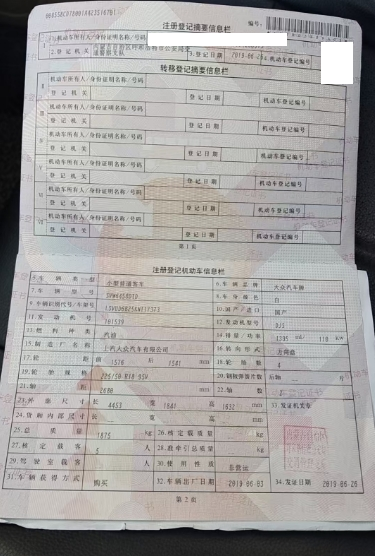 注册登记摘要信息栏
编号:
1.机动车所有人/身份证明名称/号码
2.登记机关 3.登记日期 2019-06-26 4.机动车登记编号
转移登记摘要信息栏
机动车所有人/身份证明名称/号码
登记机关 登记日期 机动车登记编号
机动车所有人/身份证明名称/号码
登记机关 登记日期 机动车登记编号
机动车所有人/身份证明名称/号码
登记机关 登记日期 机动车登记编号
机动车所有人/身份证明名称/号码
登记机关 登记日期 机动车登记编号
机动车所有人/身份证明名称/号码
登记机关 登记日期 机动车登记编号
机动车所有人/身份证明名称/号码
登记机关 登记日期 机动车登记编号
第1页
注册登记机动车信息栏
5.车辆类型 小型普通客车 6.车辆品牌 大众汽车牌
7.车辆型号 8.车身颜色 白
9.车辆识别代号/车架号 10.国产/进口 国产
11.发动机号 12.发动机型号 DJS
13.燃料种类 汽油 14.排量/功率 ml/ kw
15.制造厂名称 上汽大众汽车有限公司 16.转向形式 方向盘
17.轮距 前 1576 后 1541 mm 18.轮胎数 4
19.轮胎规格 20.钢板弹簧片数 后轴 -- 片
21.轴距 2680 mm 22.轴数 2
23.外廓尺寸 长 4453 宽 1841 高 1632 mm 33.发证机关章
24.货厢内部尺寸 长 宽 高 mm
25.总质量 1875 kg 26.核定载质量 kg
27.核定载客 5 人 28.准牵引总质量 kg
29.驾驶室载客 人 30.使用性质 非营运
31.车辆获得方式 购买 32.车辆出厂日期 2019-06-03 34.发证日期 2019-06-26
第2页